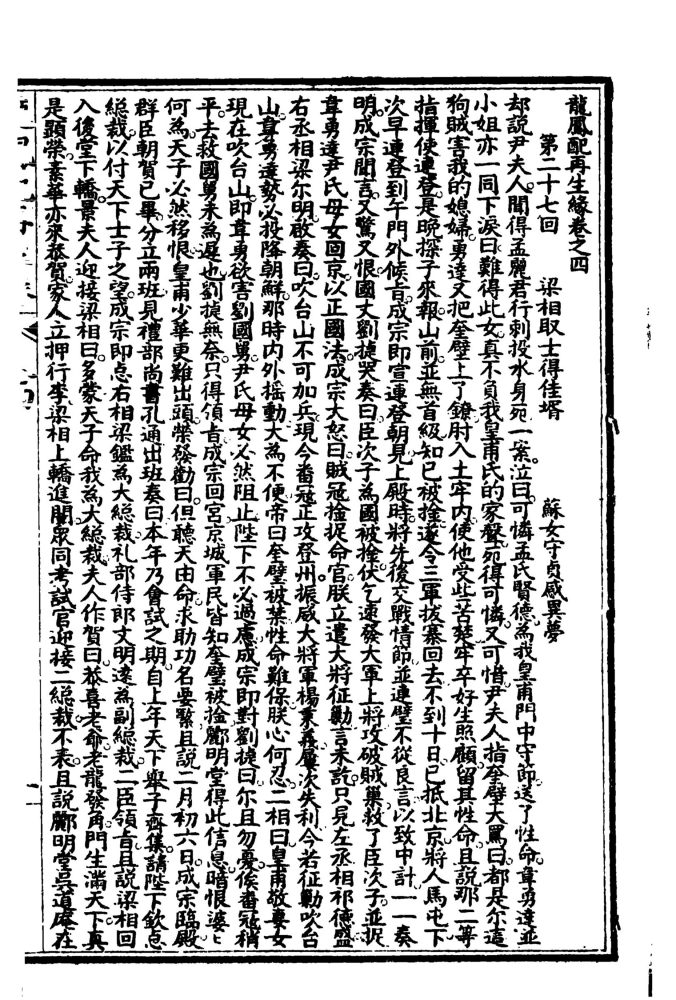 龍鳳配再生緣卷之四
第二十七回　梁相取士得佳壻　蘇女守貞感異夢
却說尹夫人聞得孟麗君行刺投水身死一案泣曰可憐孟氏賢德為我皇甫門中守節送了性命韋勇達並
小姐亦一同下淚曰難得此女真不負我皇甫氏的家聲死得可憐又可惜尹夫人指奎璧大罵曰都是尔這
狗賊害我的媳婦勇達又把奎璧上了鐐肘入土牢内使他受些苦楚牢卒好生照顧留其性命且說那二等
指揮使連登是晚探子來報山前並無首級知已被擒遂令三軍拔寨回去不到十日已抵北京將人馬屯下
次早連登到午門外候旨成宗即宣連登朝見上殿時將先後交戰情節並連璧不從良言以致中計一一奏
明成宗聞言又驚又恨國丈劉捷哭奏曰臣次子為國被擒伏乞速發大軍上將攻破賊巢救了臣次子並捉
韋勇達尹氏母女回京以正國法成宗大怒曰賊冠擅捉命官朕立遣大將征勦言未訖只見左丞相祁德盛
右丞相梁尔明啟奏曰吹台山不可加兵現今番冠正攻登州振威大將軍楊秉義屢次失利今若征勦吹台
山韋勇達勢必投降朝鮮那時内外摇動大為不便帝曰奎璧被禁性命難保朕心何忍二相曰皇甫敬妻女
現在吹台山即韋勇欲害劉國舅尹氏母女必然阻止陛下不必過慮成宗即對劉捷曰尔且勿憂候番冠稍
平去救國舅未為遲也劉捷無奈只得領旨成宗回宮京城軍民皆知奎璧被擒酈明堂得此信息暗恨婆〻
何為天子必然移恨皇甫少華更難出頭榮發勸曰但聽天由命求助功名要緊且說二月初六日成宗臨殿
群臣朝賀已畢分立兩班見禮部尚書孔通出班奏曰本年乃會試之期自上年天下舉子齊集請陛下欽点
總裁以付天下士子之望成宗即点右相梁鑑為大總裁礼部侍郎文明遠為副總裁二臣領旨且說梁相回
入後堂下轎景夫人迎接梁相曰多蒙天子命我為大總裁夫人作賀曰恭喜老爺老龍發角門生滿天下真
是顕榮素華亦來恭賀家人立押行李梁相上轎進闈眾同考試官迎接二總裁不表且說酈明堂吳道庵在